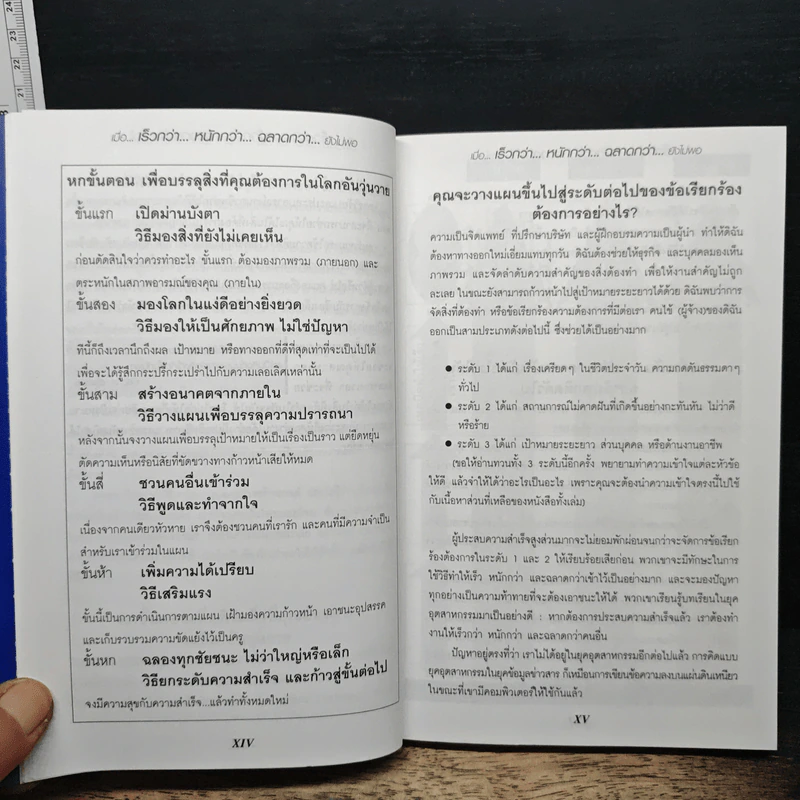 24
23
22
21
เมื่อ... เร็วกว่า... หนักกว่า... ฉลาดกว่า... ยังไม่พอ
หกขั้นตอน เพื่อบรรลุสิ่งที่คุณต้องการในโลกอันวุ่นวาย
ขั้นแรก เปิดม่านบังตา
วิธีมองสิ่งที่ยังไม่เคยเห็น
ก่อนตัดสินใจว่าควรทำอะไร ขั้นแรก ต้องมองภาพรวม (ภายนอก) และ
ตระหนักในสภาพอารมณ์ของคุณ (ภายใน)
ขั้นสอง มองโลกในแง่ดีอย่างยิ่งยวด
วิธีมองให้เป็นศักยภาพ ไม่ใช่ปัญหา
ทีนี้ก็ถึงเวลานึกถึงผล เป้าหมาย หรือทางออกที่ดีที่สุดเท่าที่จะเป็นไปได้
เพื่อจะได้รู้สึกกระปรี้กระเปร่าไปกับความเลอเลิศเหล่านั้น
ขั้นสาม สร้างอนาคตจากภายใน
วิธีวางแผนเพื่อบรรลุความปรารถนา
หลังจากนั้นจงวางแผนเพื่อบรรลุเป้าหมายให้เป็นเรื่องเป็นราว แต่ยืดหยุ่น
ตัดความเห็นหรือนิสัยที่ขัดขวางทางก้าวหน้าเสียให้หมด
ขั้นสี่ ชวนคนอื่นเข้าร่วม
วิธีพูดและทำจากใจ
เนื่องจากคนเดียวหัวหาย เราจึงต้องชวนคนที่เรารัก และคนที่มีความจำเป็น
สำหรับเราเข้าร่วมในแผน
ขั้นห้า เพิ่มความได้เปรียบ
วิธีเสริมแรง
ขั้นนี้เป็นการดำเนินการตามแผน เฝ้ามองความก้าวหน้า เอาชนะอุปสรรค
และเก็บรวบรวมความขัดแย้งไว้เป็นครู
ขั้นหก ฉลองทุกชัยชนะ ไม่ว่าใหญ่หรือเล็ก
วิธียกระดับความสำเร็จ และก้าวสู่ขั้นต่อไป
จงมีความสุขกับความสำเร็จ...แล้วทำทั้งหมดใหม่
XIV
เมื่อ... เร็วกว่า... หนักกว่า... ฉลาดกว่า... ยังไม่พอ
คุณจะวางแผนขึ้นไปสู่ระดับต่อไปของข้อเรียกร้อง
ต้องการอย่างไร?
ความเป็นจิตแพทย์ ที่ปรึกษาบริษัท และผู้ฝึกอบรมความเป็นผู้นำ ทำให้ดิฉัน
ต้องหาทางออกใหม่เอี่ยมแทบทุกวัน ดิฉันต้องช่วยให้ธุรกิจ และบุคคลมองเห็น
ภาพรวม และจัดลำดับความสำคัญของสิ่งต้องทำ เพื่อให้งานสำคัญไม่ถูก
ละเลย ในขณะยังสามารถก้าวหน้าไปสู่เป้าหมายระยะยาวได้ด้วย ดิฉันพบว่าการ
จัดสิ่งที่ต้องทำ หรือข้อเรียกร้องความต้องการที่มีต่อเรา คนไข้ (ผู้จ้าง)ของดิฉัน
ออกเป็นสามประเภทดังต่อไปนี้ ซึ่งช่วยได้เป็นอย่างมาก
● ระดับ 1 ได้แก่ เรื่องเครียดๆ ในชีวิตประจำวัน ความกดดันธรรมดาๆ
ทั่วไป
● ระดับ 2 ได้แก่ สถานการณ์ไม่คาดฝันที่เกิดขึ้นอย่างกะทันหัน ไม่ว่าดี
หรือร้าย
● ระดับ 3 ได้แก่ เป้าหมายระยะยาว ส่วนบุคคล หรือด้านงานอาชีพ
(ขอให้อ่านทวนทั้ง 3 ระดับนี้อีกครั้ง พยายามทำความเข้าใจแต่ละหัวข้อ
ให้ดี แล้วจำให้ได้ว่าอะไรเป็นอะไร เพราะคุณจะต้องนำความเข้าใจตรงนี้ไปใช้
กับเนื้อหาส่วนที่เหลือของหนังสือทั้งเล่ม)
ผู้ประสบความสำเร็จสูงส่วนมากจะไม่ยอมพักผ่อนจนกว่าจะจัดการข้อเรียก
ร้องต้องการในระดับ 1 และ 2 ให้เรียบร้อยเสียก่อน พวกเขาจะมีทักษะในการ
ใช้วิธีทำให้เร็ว หนักกว่า และฉลาดกว่าเข้าไว้เป็นอย่างมาก และจะมองปัญหา
ทุกอย่างเป็นความท้าทายที่จะต้องเอาชนะให้ได้ พวกเขาเรียนรู้บทเรียนในยุค
อุตสาหกรรมมาเป็นอย่างดี : หากต้องการประสบความสำเร็จแล้ว เราต้องทำ
งานให้เร็วกว่า หนักกว่า และฉลาดกว่าคนอื่น
ปัญหาอยู่ตรงที่ว่า เราไม่ได้อยู่ในยุคอุตสาหกรรมอีกต่อไปแล้ว การคิดแบบ
ยุคอุตสาหกรรมในยุคข้อมูลข่าวสาร ก็เหมือนการเขียนข้อความลงบนแผ่นดินเหนียว
ในขณะที่เขามีคอมพิวเตอร์ให้ใช้กันแล้ว
XV